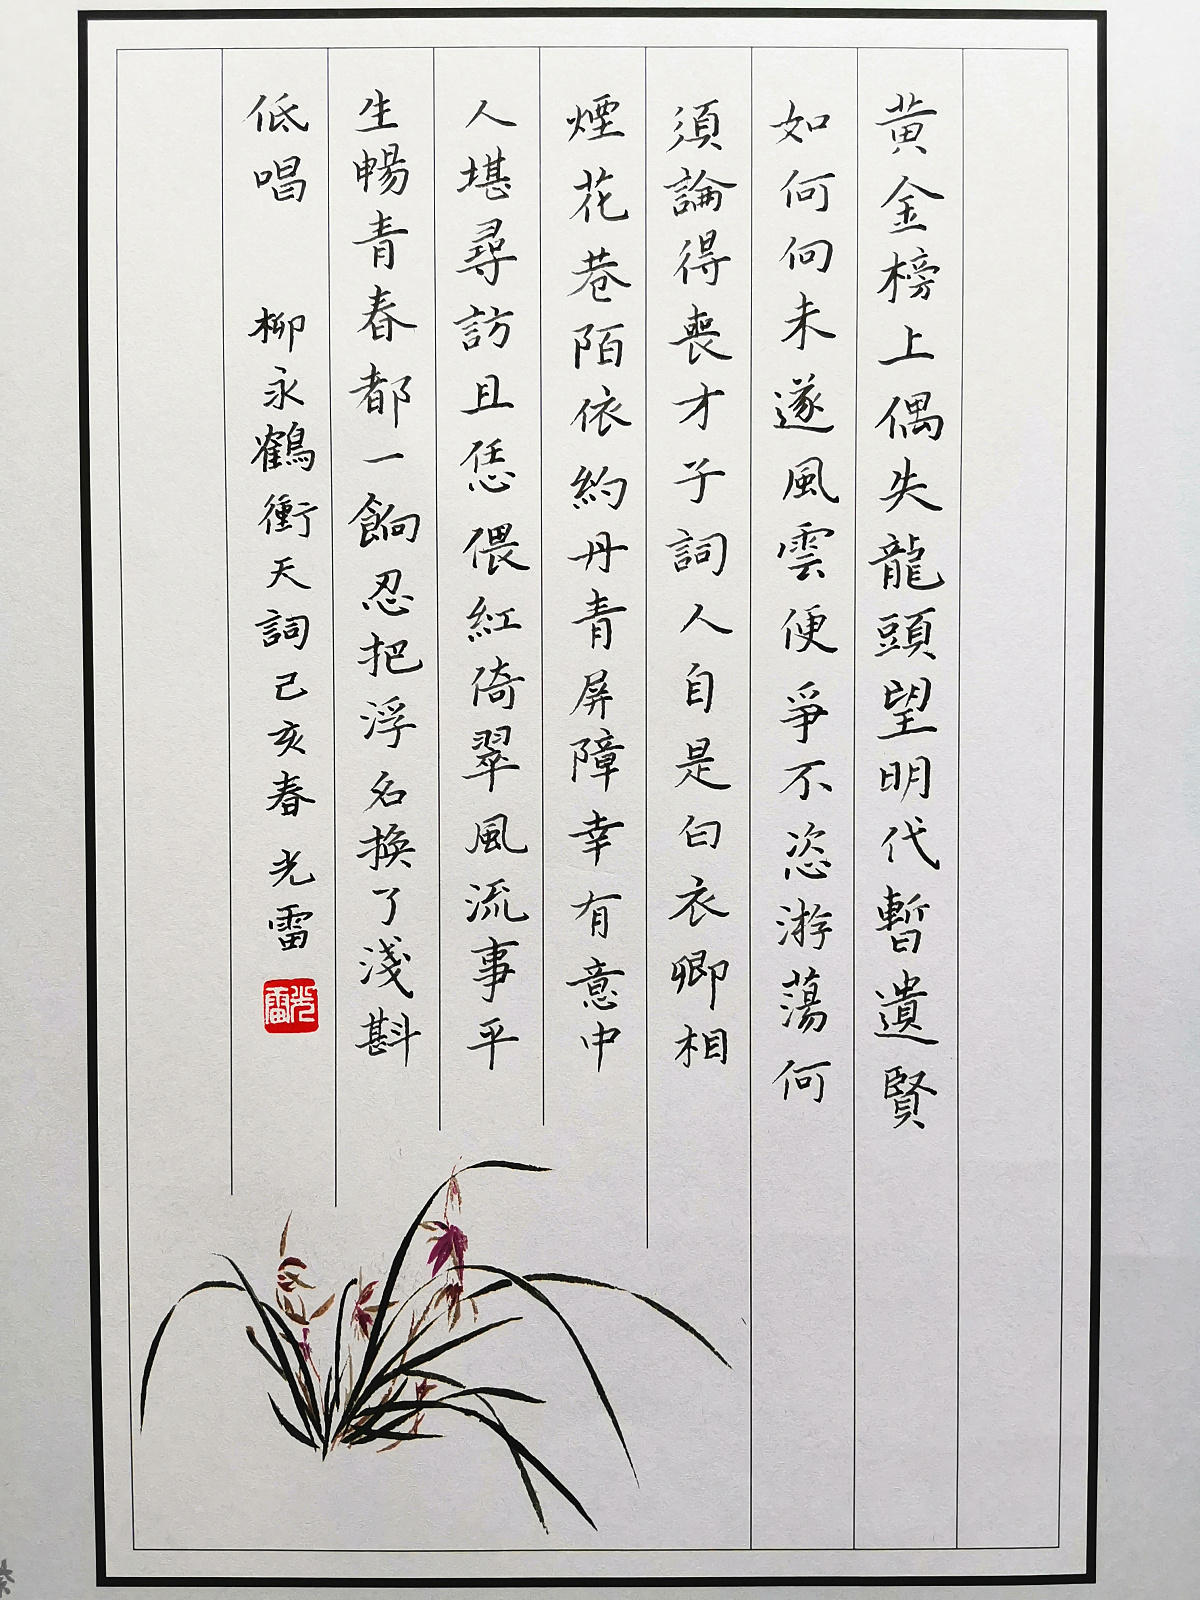 黄金榜上偶失龍頭望明代暫遺賢
如何向未遂風雲便爭不恣游蕩何
須論得喪才子詞人自是白衣卿相
煙花巷陌依約丹青屏障幸有意中
人堪尋訪且恁偎紅倚翠風流事平
生暢青春都一餉忍把浮名換了淺斟
低唱 柳永鶴衝天詞己亥春 光雷
光雷